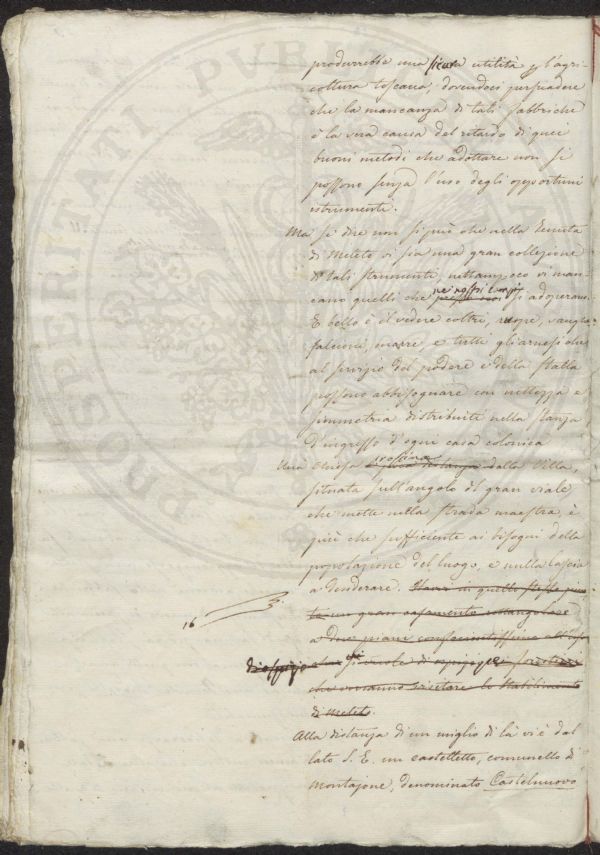 produrrebbe una sicura utilità p l'agri-
coltura toscana, dovendoci persuadere
che la mancanza di tali fabbriche
è la vera causa del ritardo di quei
buoni metodi che adottare non si
possono senza l'uso degli opportuni
istrumenti.
Ma se dire non si può che nella Tenuta
di Meleto vi sia una gran collezione
di tali strumenti, nettampoco vi man-
cano quelli che ne nostri tempi si adoperano.
E bello è il vedere coltri, ruspe, vanghe
falcioni, marre, e tutti gli arnesi che
al servizio del podere e della stalla
possono abbisognare con nettezza e
simmetria distribuiti nella stanza
d'ingresso d'ogni casa colonica
Una chiesa prossima dalla Villa,
situata sull'angolo del gran viale
che mette nella strada maestra, è
più che sufficiente ai bisogni della
popolazione del luogo, e nulla lascia
a desiderare. Havvi in quelle stesse
un gran casamento rettangolare
16
a due piani
di ospizio che si vuole forestieri
che vorranno visitare lo stabilimento
di Meleto.
Alla distanza di un miglio di là vi è dal
lato S. E. un castelletto, comunello di
Montajone, denominato Castelnuovo
PROSPERITATI PUBLICAE